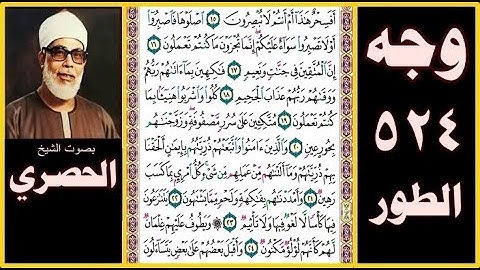 وجه
٥٢٤
الطور
أَفَسِحْرٌ هَٰذَآ أَمْ أَنتُمْ لَا تُبْصِرُونَ ١٥ ٱصْلَوْهَا فَٱصْبِرُوٓا۟
أَوْ لَا تَصْبِرُوا۟ سَوَآءٌ عَلَيْكُمْ إِنَّمَا تُجْزَوْنَ مَا كُنتُمْ تَعْمَلُونَ ١٦
إِنَّ ٱلْمُتَّقِينَ فِى جَنَّٰتٍ وَنَعِيمٍ ١٧ فَٰكِهِينَ بِمَآ ءَاتَىٰهُمْ رَبُّهُمْ
وَوَقَىٰهُمْ رَبُّهُمْ عَذَابَ ٱلْجَحِيمِ ١٨ كُلُوا۟ وَٱشْرَبُوا۟ هَنِيٓـًٔۢا بِمَا
كُنتُمْ تَعْمَلُونَ ١٩ مُتَّكِـِٔينَ عَلَىٰ سُرُرٍ مَّصْفُوفَةٍ وَزَوَّجْنَٰهُم
بِحُورٍ عِينٍ ٢٠ وَٱلَّذِينَ ءَامَنُوا۟ وَٱتَّبَعَتْهُمْ ذُرِّيَّتُهُم بِإِيمَٰنٍ أَلْحَقْنَا
بِهِمْ ذُرِّيَّتَهُمْ وَمَآ أَلَتْنَٰهُم مِّنْ عَمَلِهِم مِّن شَىْءٍ كُلُّ ٱمْرِئٍۭ بِمَا كَسَبَ
رَهِينٌ ٢١ وَأَمْدَدْنَٰهُم بِفَٰكِهَةٍ وَلَحْمٍ مِّمَّا يَشْتَهُونَ ٢٢ يَتَنَٰزَعُونَ
فِيهَا كَأْسًا لَّا لَغْوٌ فِيهَا وَلَا تَأْثِيمٌ ٢٣ وَيَطُوفُ عَلَيْهِمْ غِلْمَانٌ
لَّهُمْ كَأَنَّهُمْ لُؤْلُؤٌ مَّكْنُونٌ ٢٤ وَأَقْبَلَ بَعْضُهُمْ عَلَىٰ بَعْضٍ يَتَسَآءَلُونَ
بصوت الشيخ
الحصري